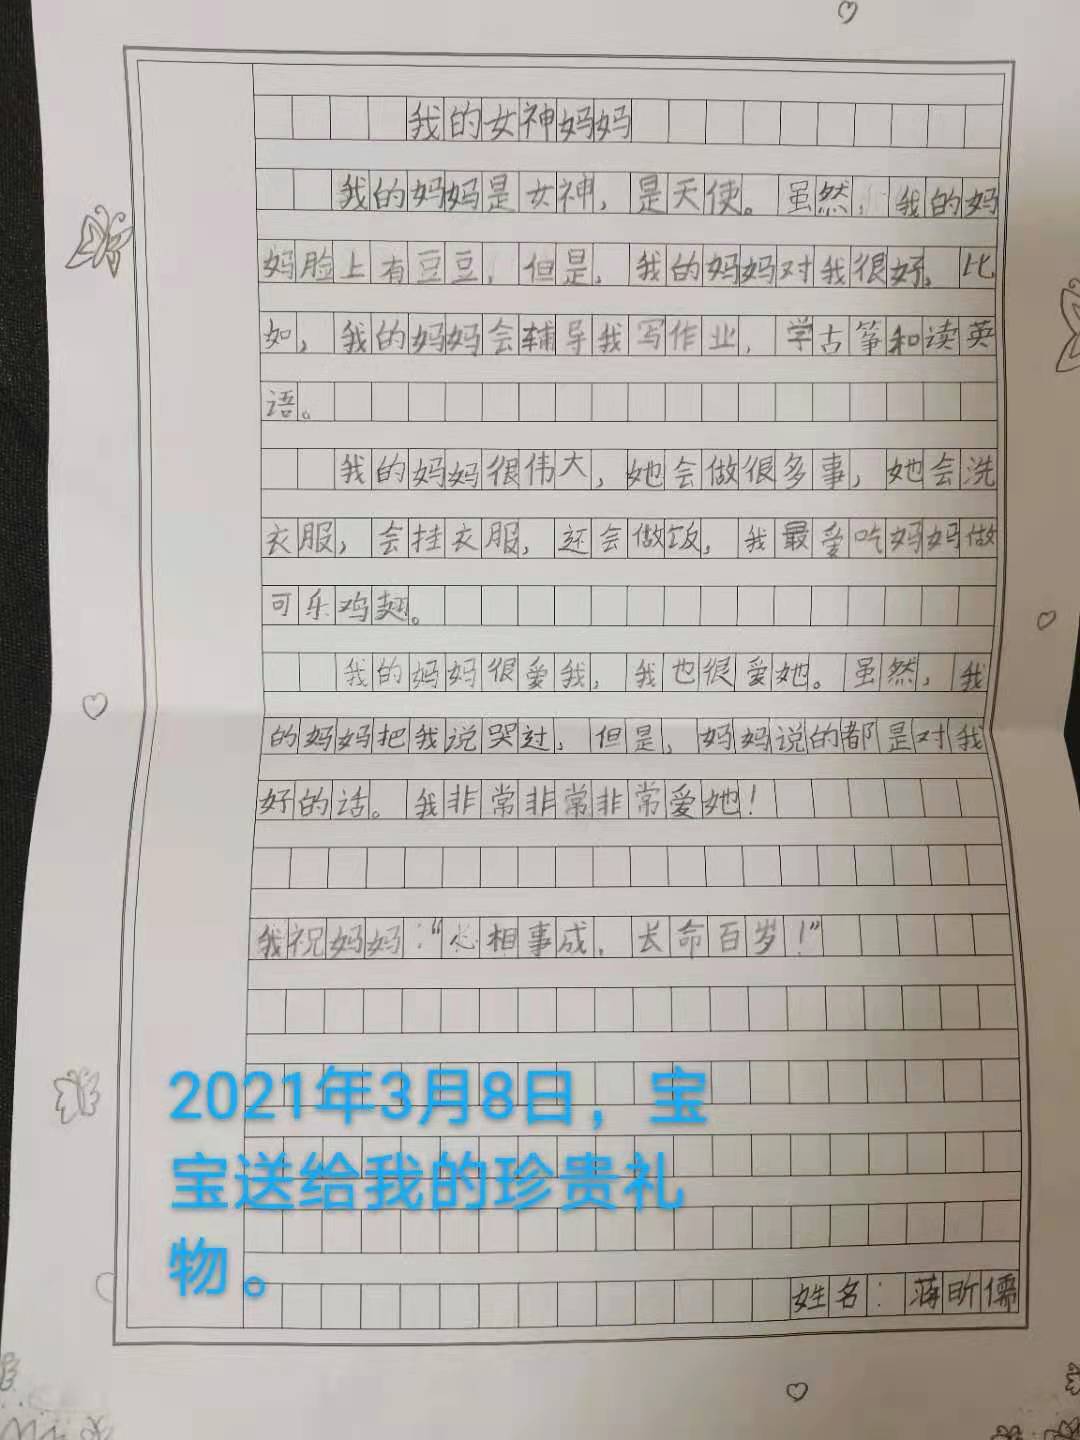 我的女神妈妈
我的妈妈是女神，是天使。虽然，我的妈
妈脸上有豆豆，但是，我的妈妈对我很好，比
如，我的妈妈会辅导我写作业，学古筝和读英
语。
我的妈妈很伟大，她会做很多事，她会洗
衣服，会挂衣服，还会做饭，我最爱吃妈妈做
可乐鸡翅。
我的妈妈很爱我，我也很爱她。虽然，我
的妈妈把我说哭过，但是，妈妈说的都是对我
好的话。我非常非常非常爱她！
我祝妈妈：“心相事成，长命百岁！”
2021年3月8日，宝
宝送给我的珍贵礼
物。
姓名：蒋昕儒